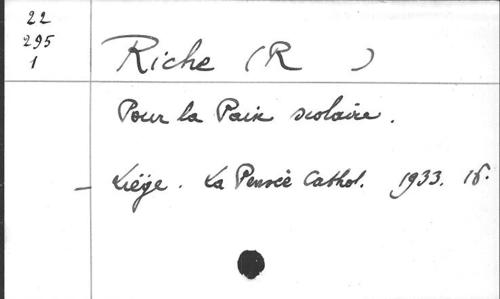 22
295
1
Riche (R )
Pour la Paix scolaire.
Liége. La Pensée Cathol. 1933. 16.